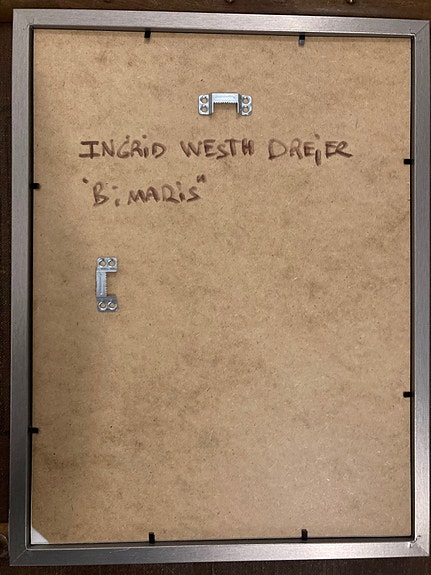 INGRID WESTH DREJER
"BiMARIS"